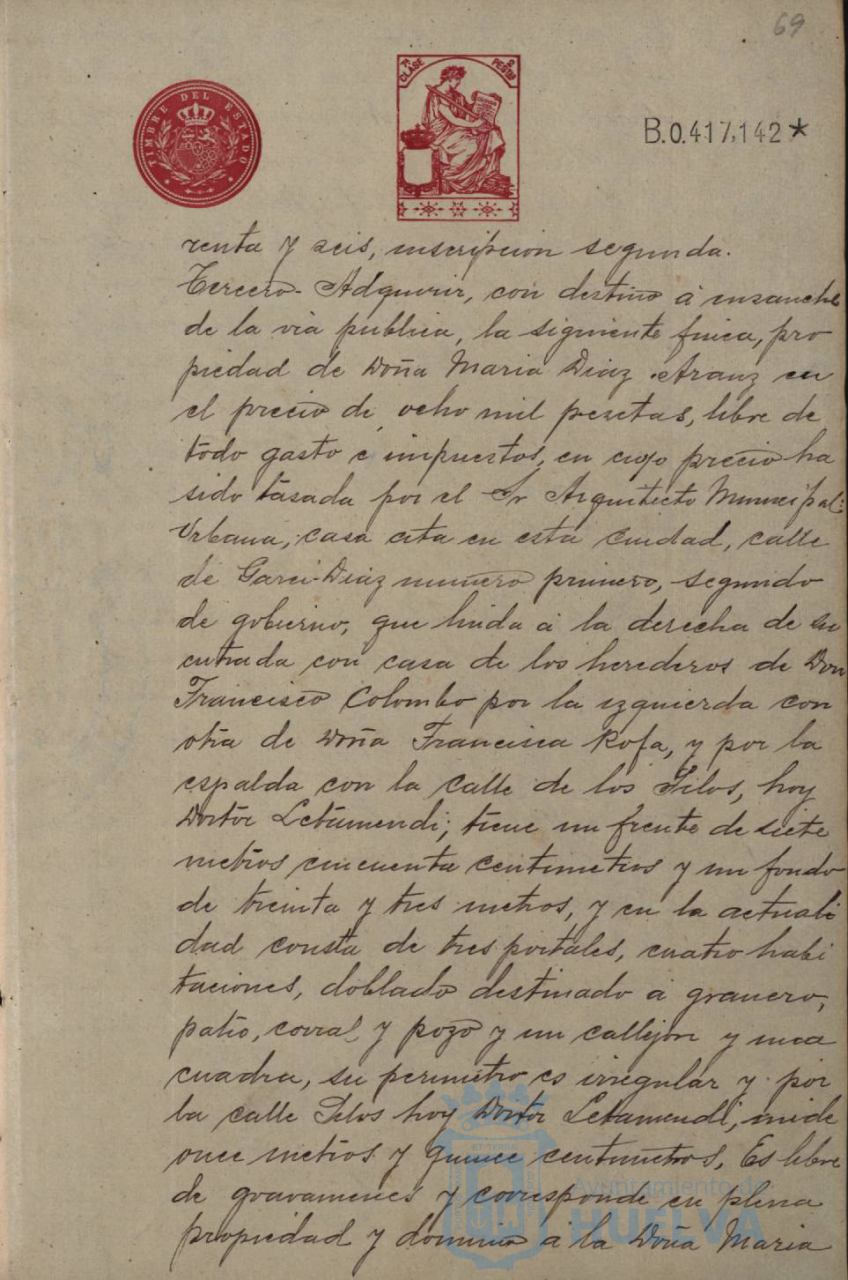 69
TIMBRE DEL ESTADO
7ª CLASE 2 PESETAS
B.0.417,142*
renta y seis, inscripcion segunda.
Tercero- Adquirir, con destino á ensanche
de la via publica, la siguiente finca, pro
piedad de Doña Maria Diaz Aranz en
el precio de ocho mil pesetas, libre de
todo gasto e impuestos, en cuyo precio ha
sido tasada por el Sr Arquitecto Municipal:
Urbana; casa cita en esta Ciudad, calle
de Garci-Diaz numero primero, segundo
de gobierno, que linda á la derecha de su
entrada con casa de los herederos de Don
Francisco Colombo por la izquierda con
otra de Doña Francisca Rofa, y por la
espalda con la calle de los Silos, hoy
Doctor Letamendi; tiene un frente de siete
metros cincuenta centimetros y un fondo
de treinta y tres metros, y en la actuali
dad consta de tres portales, cuatro habi
taciones, doblado destinado á granero,
patio, corral y pozo y un callejon y una
cuadra, su perimetro es irregular y por
la calle Silos hoy Doctor Letamendi, mide
once metros y quince centimetros. Es libre
de gravamenes y corresponde en plena
propiedad y dominio á la Doña Maria
Ayuntamiento de
HUELVA